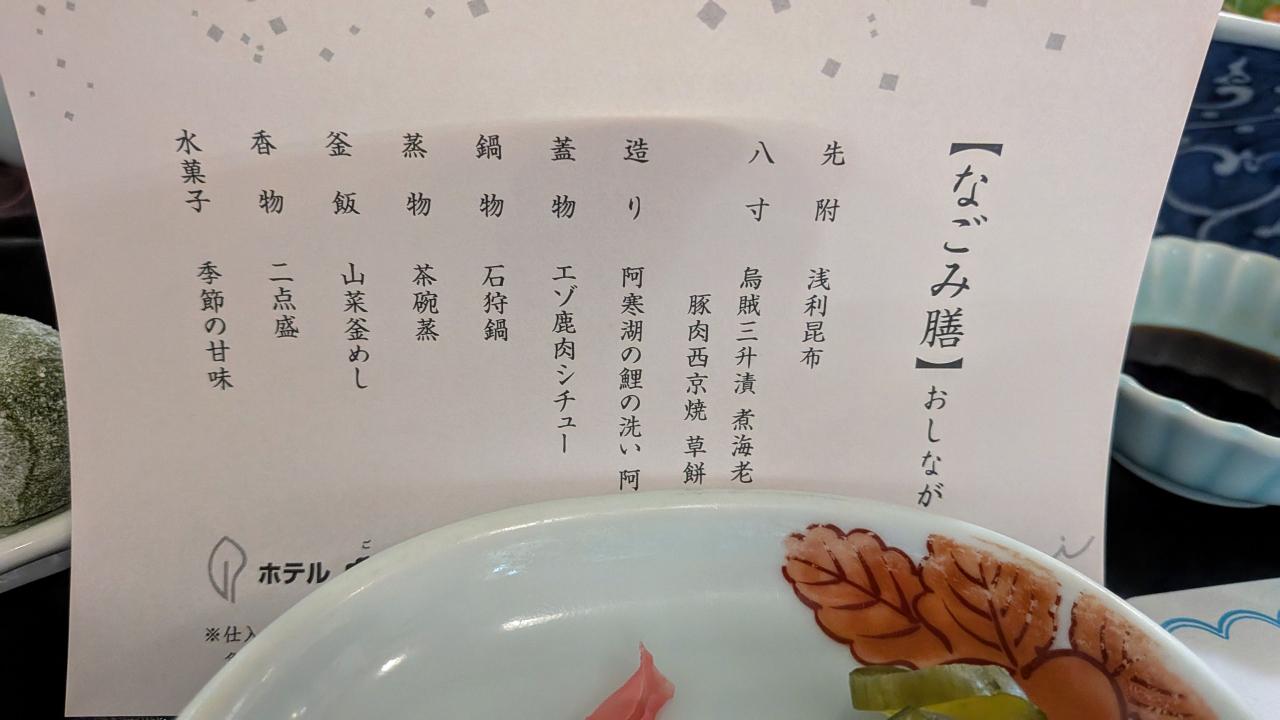 【なごみ膳】おしながが
先附 浅利昆布
八寸 烏賊三升漬 煮海老
豚肉西京焼 草餅
造り 阿寒湖の鯉の洗い 阿
蓋物 エゾ鹿肉シチュー
鍋物 石狩鍋
蒸物 茶碗蒸
釜飯 山菜釜めし
香物 二点盛
水菓子 季節の甘味
ホテル
※仕入